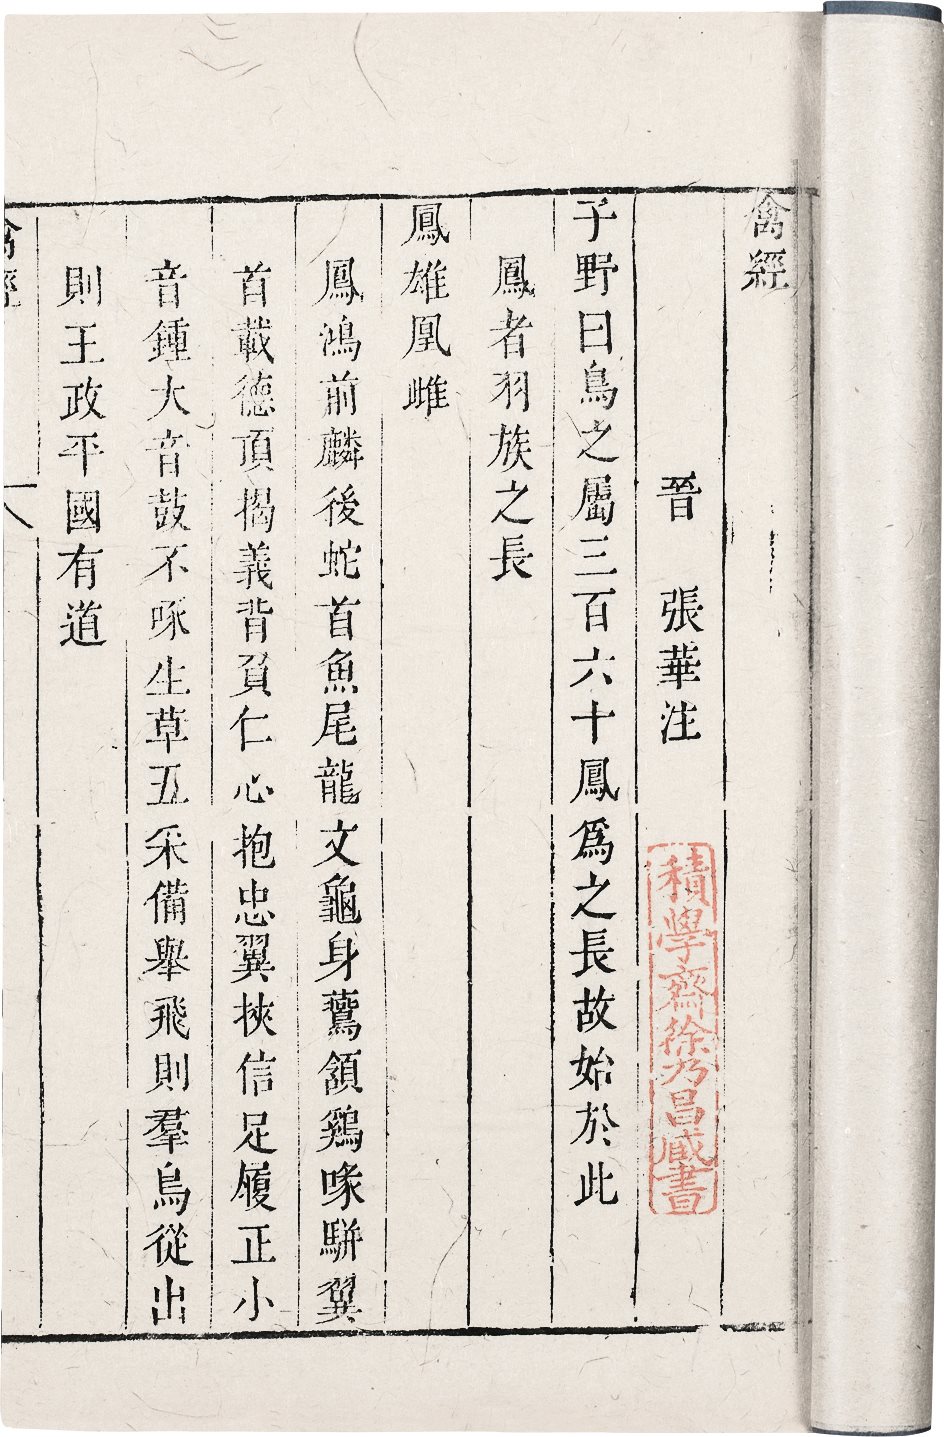 禽經
晉 張華注
積學齋徐乃昌藏書
子野曰鳥之屬三百六十鳳為之長故始於此
鳳者羽族之長
鳳雄凰雌
鳳鴻前麟後蛇首魚尾龍文龜身鷰頷鷄喙駢翼
首載德頂揭義背負仁心抱忠翼挾信足履正小
音鍾大音鼓不啄生草五采備舉飛則羣鳥從出
則王政平國有道
禽經
一